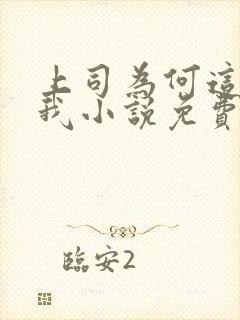 上司為何這
我小說免費
臨安2